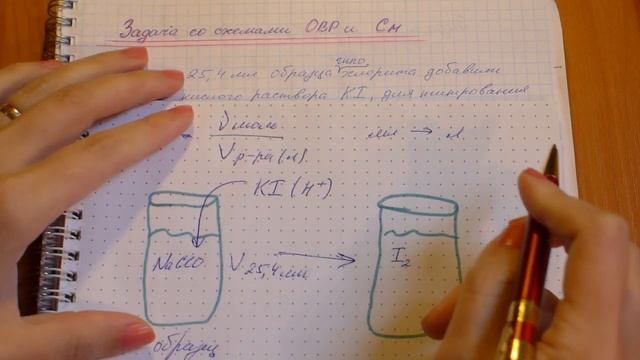 Задача со схемами ОВР и См
гипо
25,4 мл образца хлорита добавили
кислого раствора KI, для титрования
ν моль
V р-ра (л).
мл → л.
KI (H⁺)
NaClO
V 25,4 мл
I₂
образец